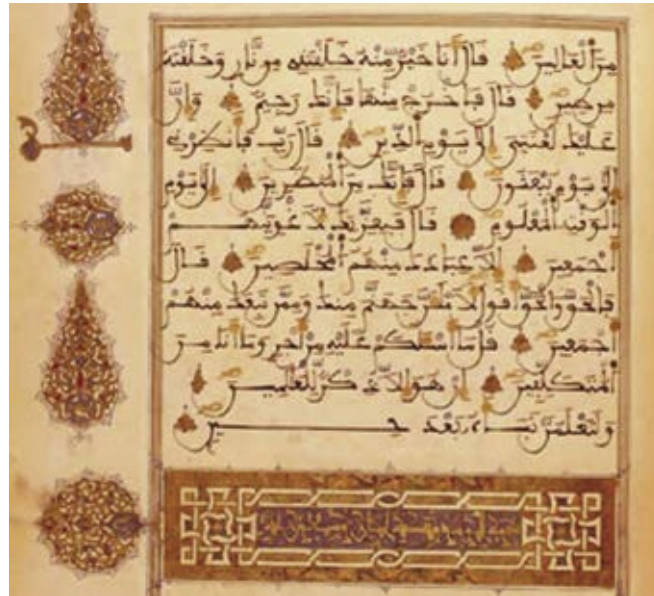 من العالين قال أنا خير منه خلقتني من نار وخلقته
من طين قال فاخرج منها فإنك رجيم وإن
عليك لعنتي إلى يوم الدين قال رب فأنظرني
إلى يوم يبعثون قال فإنك من المنظرين إلى يوم
الوقت المعلوم قال فبعزتك لأغوينهم
أجمعين إلا عبادك منهم المخلصين قال
فالحق والحق أقول لأملأن جهنم منك وممن تبعك منهم
أجمعين قل ما أسئلكم عليه من أجر وما أنا من
المتكلفين إن هو إلا ذكر للعلمين
ولتعلمن نبأه بعد حين